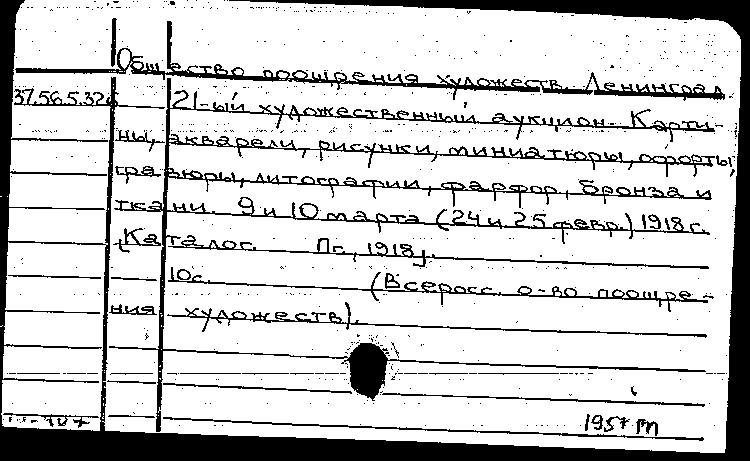 Общество поощрения художеств. Ленинград.
37.56.5.32 21-ый художественный аукцион. Карти-
ны, акварели, рисунки, миниатюры, офорты,
гравюры, литографии, фарфор, бронза и
ткани. 9 и 10 марта (24 и 25 февр.) 1918 г.
[Каталог. Пг., 1918].
10 с. (Всеросс. о-во поощре-
ния художеств).
1957 m